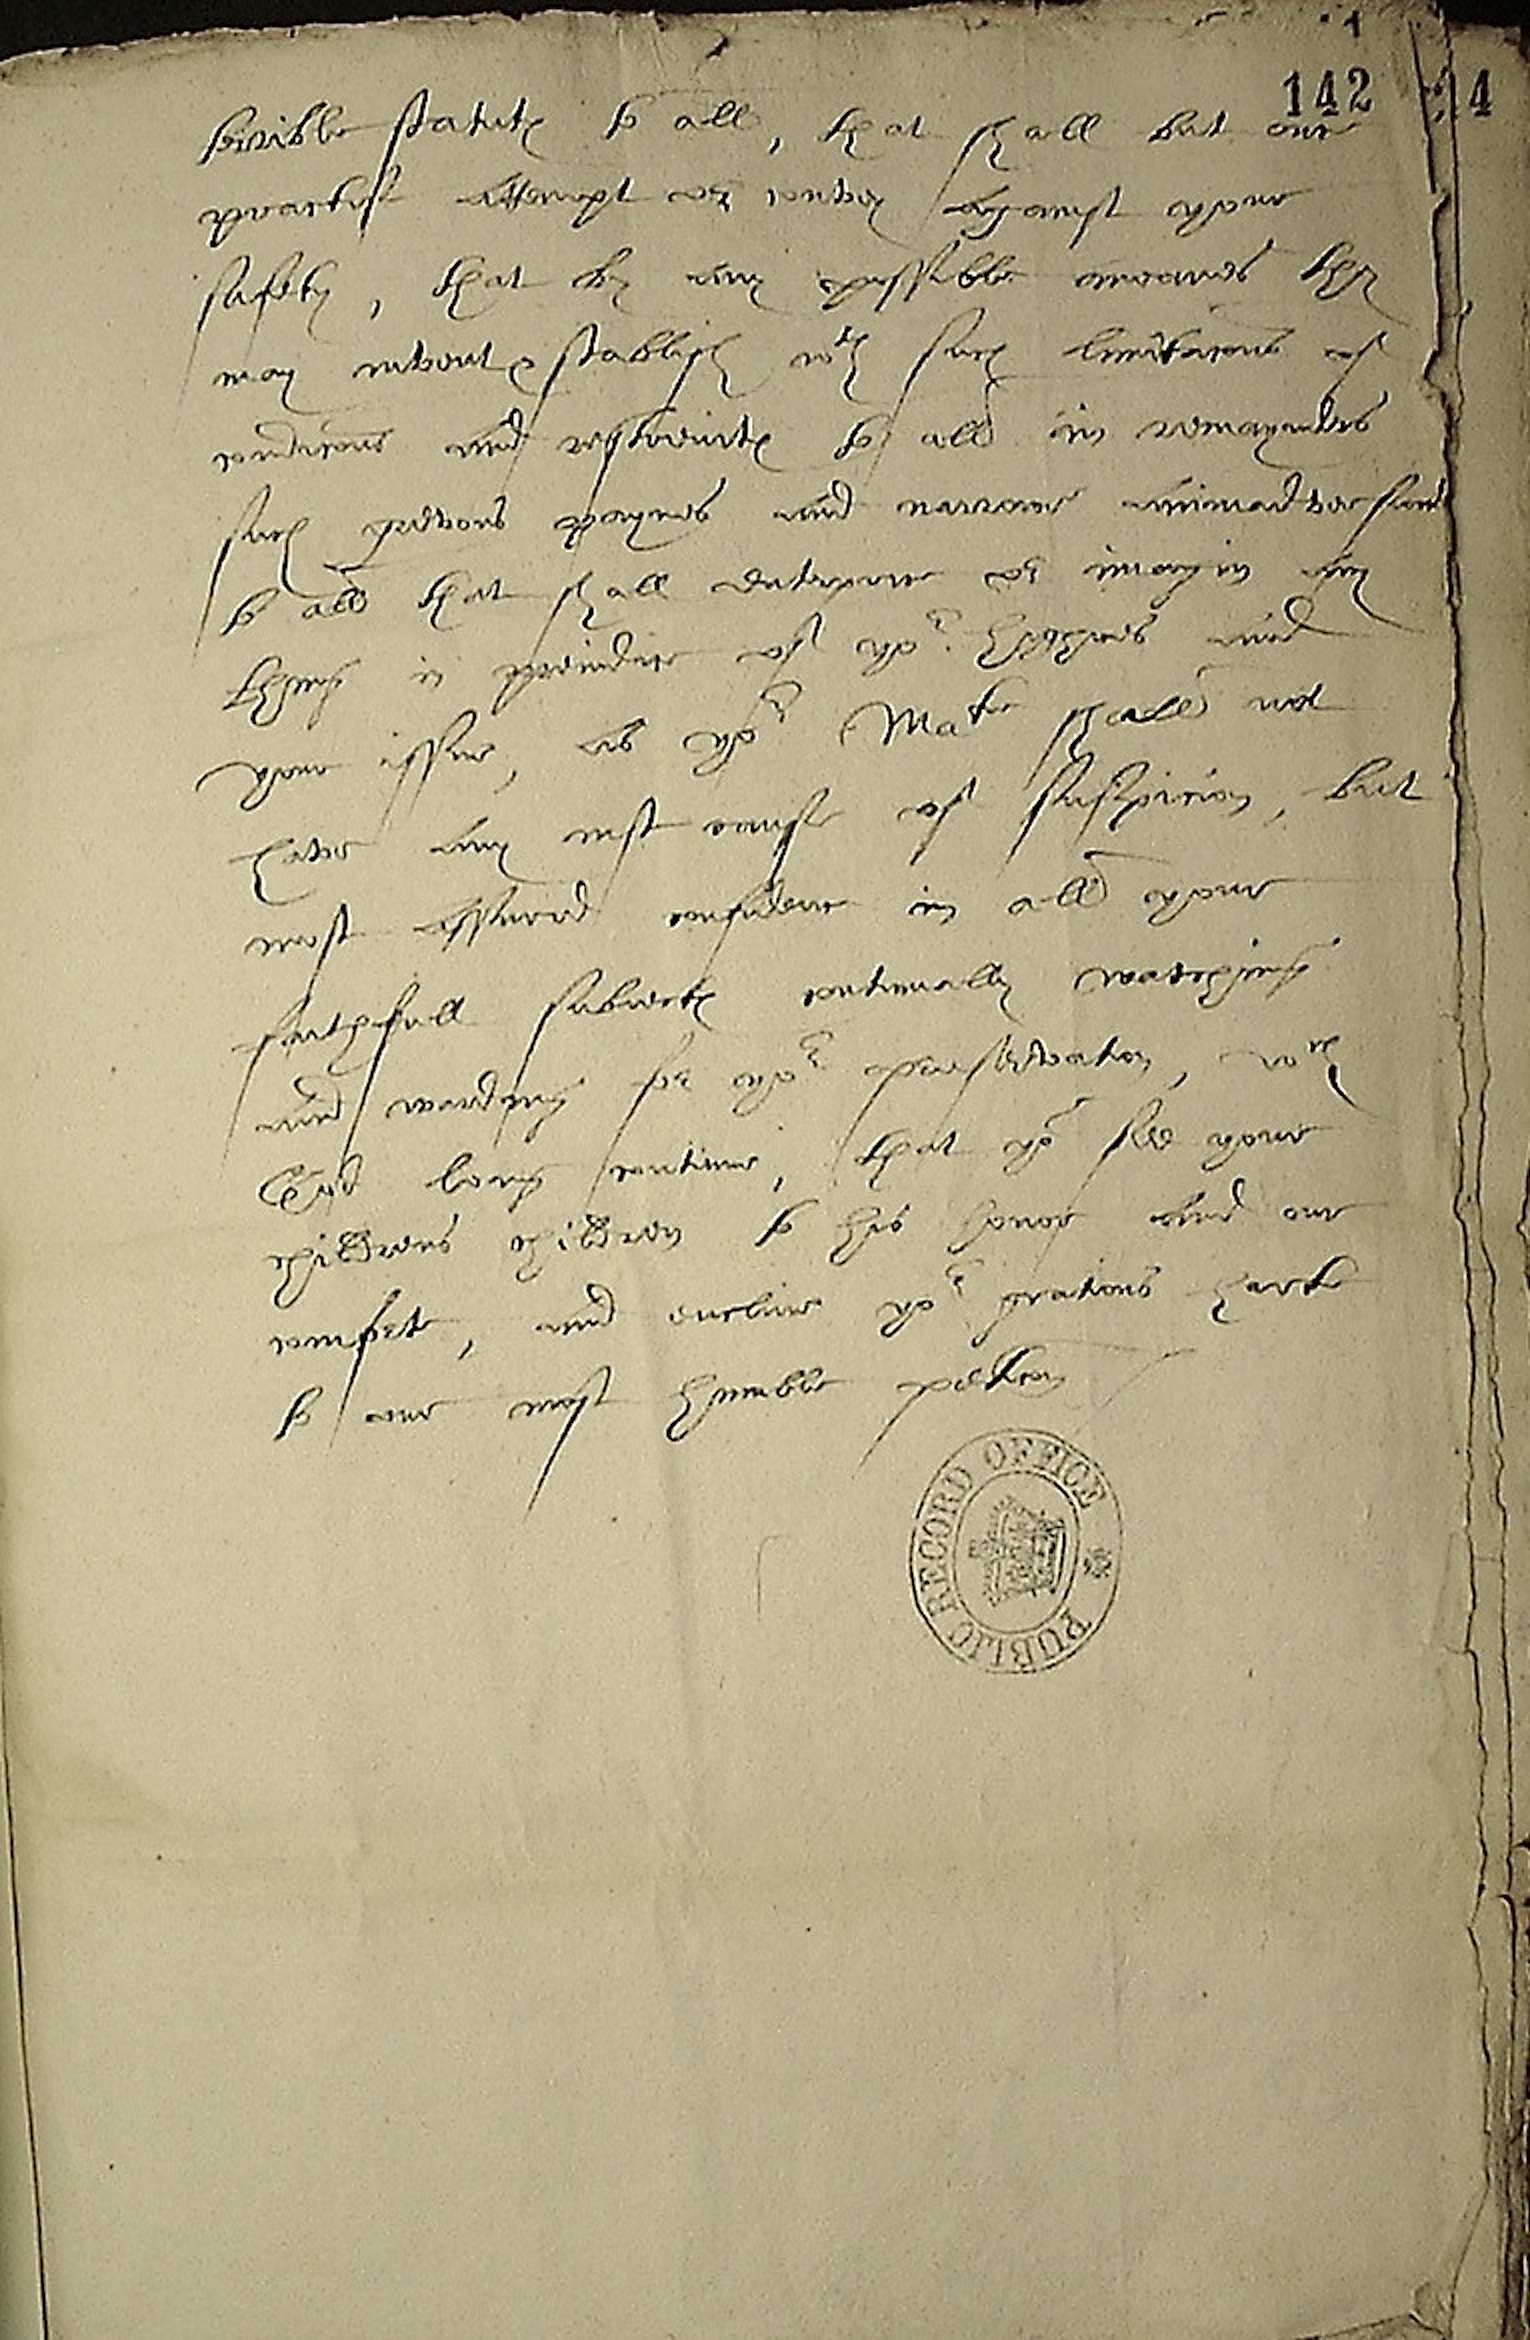 terrible statutes to all, that shall but once
practise attempt or conceve against your
safety, that by any possible meanes they
may invent or stablish wth such limitacions of
condicions and restreintes to all in remaynders
such grevous paynes and narrowe animadversions
to all that shall enterprise or imagin any
thing in preiudice of yor highnes and
your issue, as yor Matie shall not
have any iust cause of suspicion, but
most assured confidence in all your
faithfull subiectes continually watching
and warding for yor preservation, wch
God long continue, that yo see your
childrens children to his honor and our
comforte, and encline yor gratious harte
to our most humble peticion
142
14
PUBLIC RECORD OFFICE